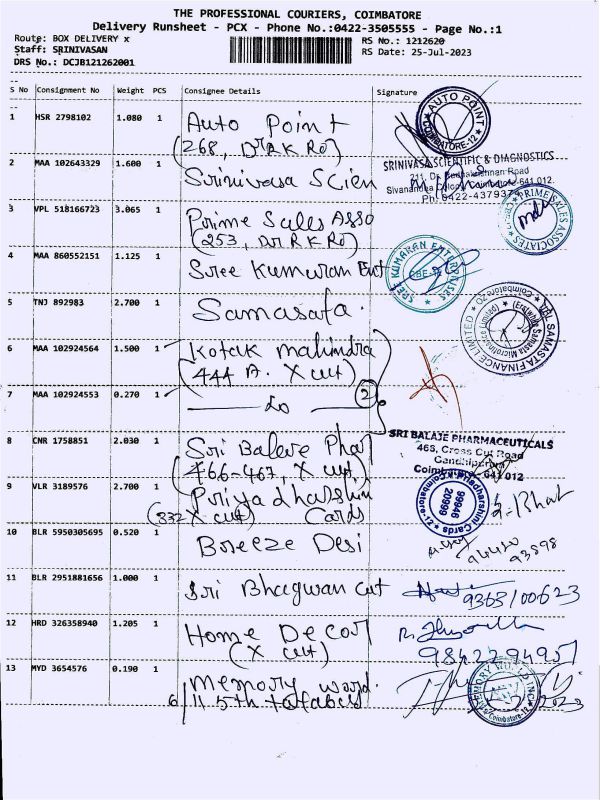 THE PROFESSIONAL COURIERS, COIMBATORE
Delivery Runsheet - PCX - Phone No.:0422-3505555 - Page No.:1
Route: BOX DELIVERY x
RS No.: 1212620
Staff: SRINIVASAN
RS Date: 25-Jul-2023
DRS No.: DCJB121262001
S No Consignment No Weight PCS Consignee Details Signature
1 HSR 2798102 1.080 1 Auto Point
(268, Dr R K Rd)
AUTO POINT
COIMBATORE-12
2 MAA 102643329 1.600 1 Srinivasa Scien
SRINIVASA SCIENTIFIC & DIAGNOSTICS
211, Dr. Radhakrishnan Road
Sivanandha Colony, Coimbatore-641 012.
Ph: 0422-437937
3 VPL 518166723 3.065 1 Prime Sales Asso
(253, Dr R K Rd)
PRIME SALES ASSOCIATES
4 MAA 860552151 1.125 1 Sree Kumaran Ent
SREE KUMARAN ENTERPRISES
CBE
5 TNJ 892983 2.700 1 Samasata.
SAMASTA FINANCE LIMITED
(Erstwhile Samasta Microfinance Limited)
Coimbatore
6 MAA 102924564 1.500 1 Kotak Mahindra
(444 A. X cut)
7 MAA 102924553 0.270 1 do 2
8 CNR 1758851 2.030 1 Sri Balaje Phar
(466-467, X cut)
SRI BALAJE PHARMACEUTICALS
468, Cross Cut Road
Gandhipuram
Coimbatore - 641 012
9 VLR 3189576 2.700 1 Priyadharshini
(332 X cut) Cards
Priadharshini Cards
Coimbatore-12.
99946
20999
10 BLR 5950305695 0.520 1 Breeze Desi
94420
93898
11 BLR 2951881656 1.000 1 Sri Bhagwan cut
9363100623
12 HRD 326358940 1.205 1 Home Decor
(X cut)
9842294951
13 MYD 3654576 0.190 1 Memory word.
6/11 5th tatabad
MEMORY WORLD INC
Coimbatore-12